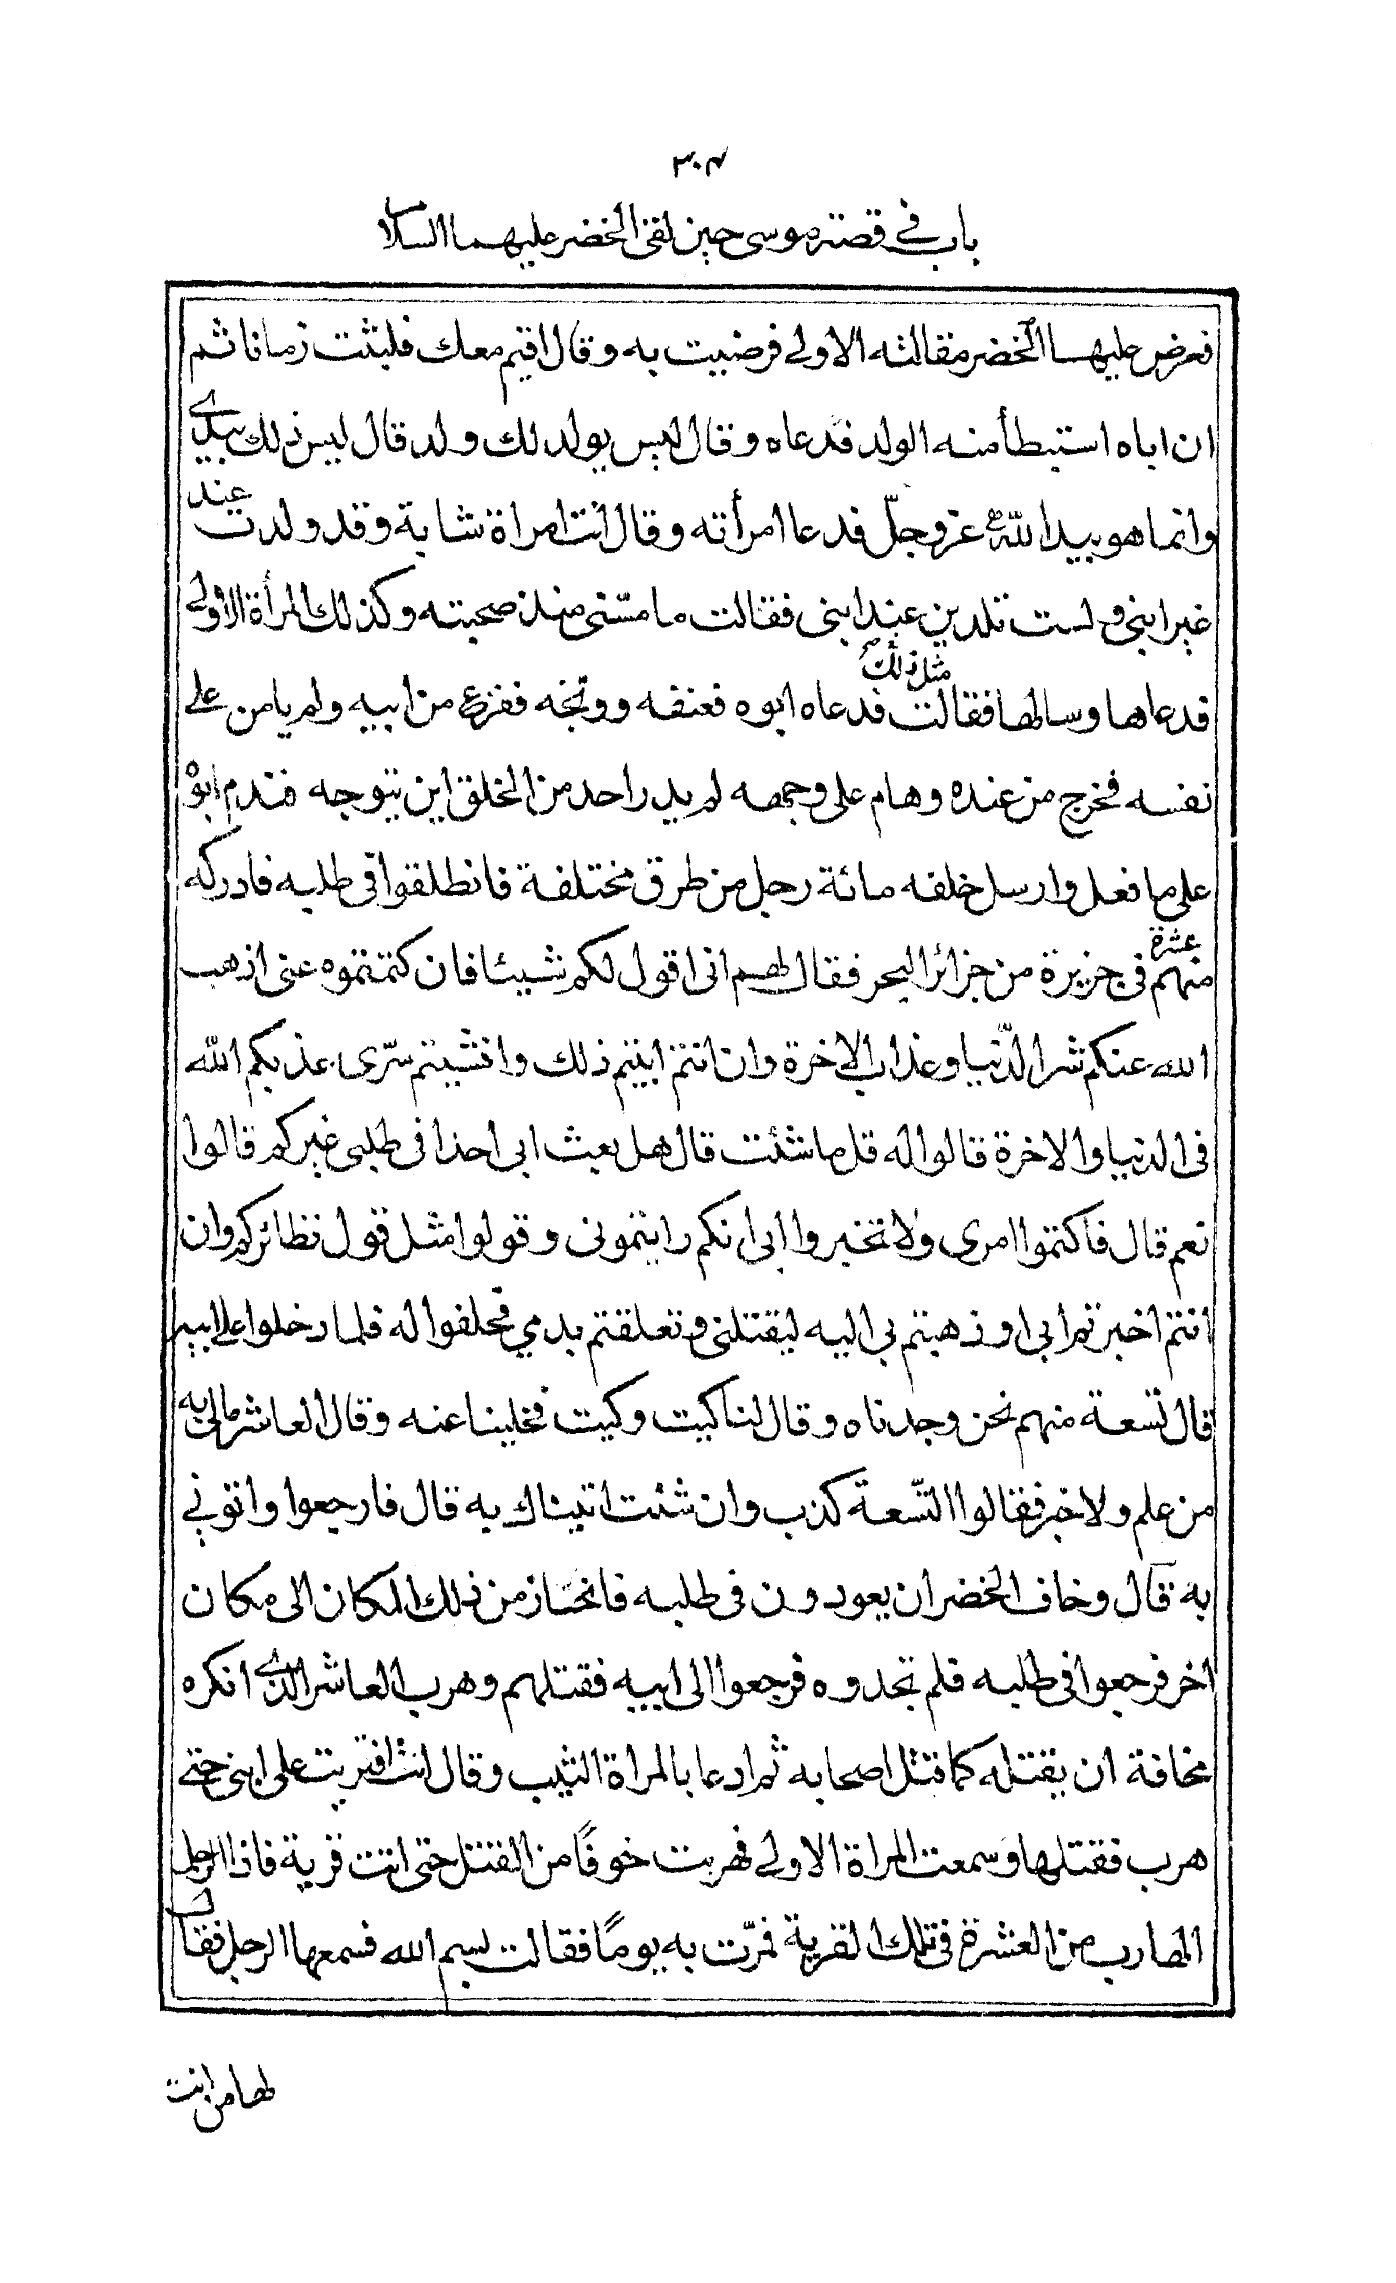 ٣٠٤
باب في قصة موسى حين لقى الخضر عليهما السلام
فعرض عليها الخضر مقالته الاولى فرضيت به وقال اقيم معك فلبثت زمانا ثم
ان اباه استبطأ منه الولد فدعاه وقال ليس يولد لك ولد قال ليس ذلك بيدي
وانما هو بيد الله عزوجلّ فدعا امرأته وقال انت امراة شابة وقد ولدت عند
غير ابنى ولست تلدين عند ابنى فقالت ما مسّنى منذ صحبته وكذلك المرأة الاولى
فدعاها وسالها فقالت مثل ذلك فدعاه ابوه فعنفه ووبّخه ففزع من ابيه ولم يامن على
نفسه فخرج من عنده وهام على وجهه لم يدر احد من الخلق اين يتوجه فندم ابوه
على ما فعل وارسل خلفه مائة رجل من طرق مختلفة فانطلقوا فى طلبه فادركه
منهم عشرة فى جزيرة من جزائر البحر فقال لهم انى اقول لكم شيئا فان كتمتموه عنى اذهب
الله عنكم شر الدّنيا وعذاب الاخرة وان انتم ابيتم ذلك وافشيتم سرّى عذبكم الله
فى الدنيا والاخرة قالوا له قل ما شئت قال هل بعث ابى احدا فى طلبى غيركم قالوا
نعم قال فاكتموا امرى ولا تخبروا ابى انكم رايتمونى وقولوا مثل قول نظائركم وان
انتم اخبرتم ابى او ذهبتم بى اليه ليقتلنى وتعلقتم بدمي فحلفوا له فلما دخلوا على ابيه
قال تسعة منهم نحن وجدناه وقال لنا كيت وكيت فخلينا عنه وقال العاشر مالى به
من علم ولا خبر فقالوا التّسعة كذب وان شئت اتيناك به قال فارجعوا واتوني
به قال وخاف الخضر ان يعودون فى طلبه فانحاز من ذلك المكان الى مكان
اخر فرجعوا فى طلبه فلم تجدوه فرجعوا الى ابيه فقتلهم وهرب العاشر الذي انكره
مخافة ان يقتله كما قتل اصحابه ثم ادعا بالمراة الثيب وقال انت افتريت على ابنى حتى
هرب فقتلها وسمعت المراة الاولى فهربت خوفًا من القتل حتى اتت قرية فاذا الرجل
الهارب من العشرة فى تلك القرية فمرّت به يومًا فقالت بسم الله فسمعها الرجل فقال
لها من انت